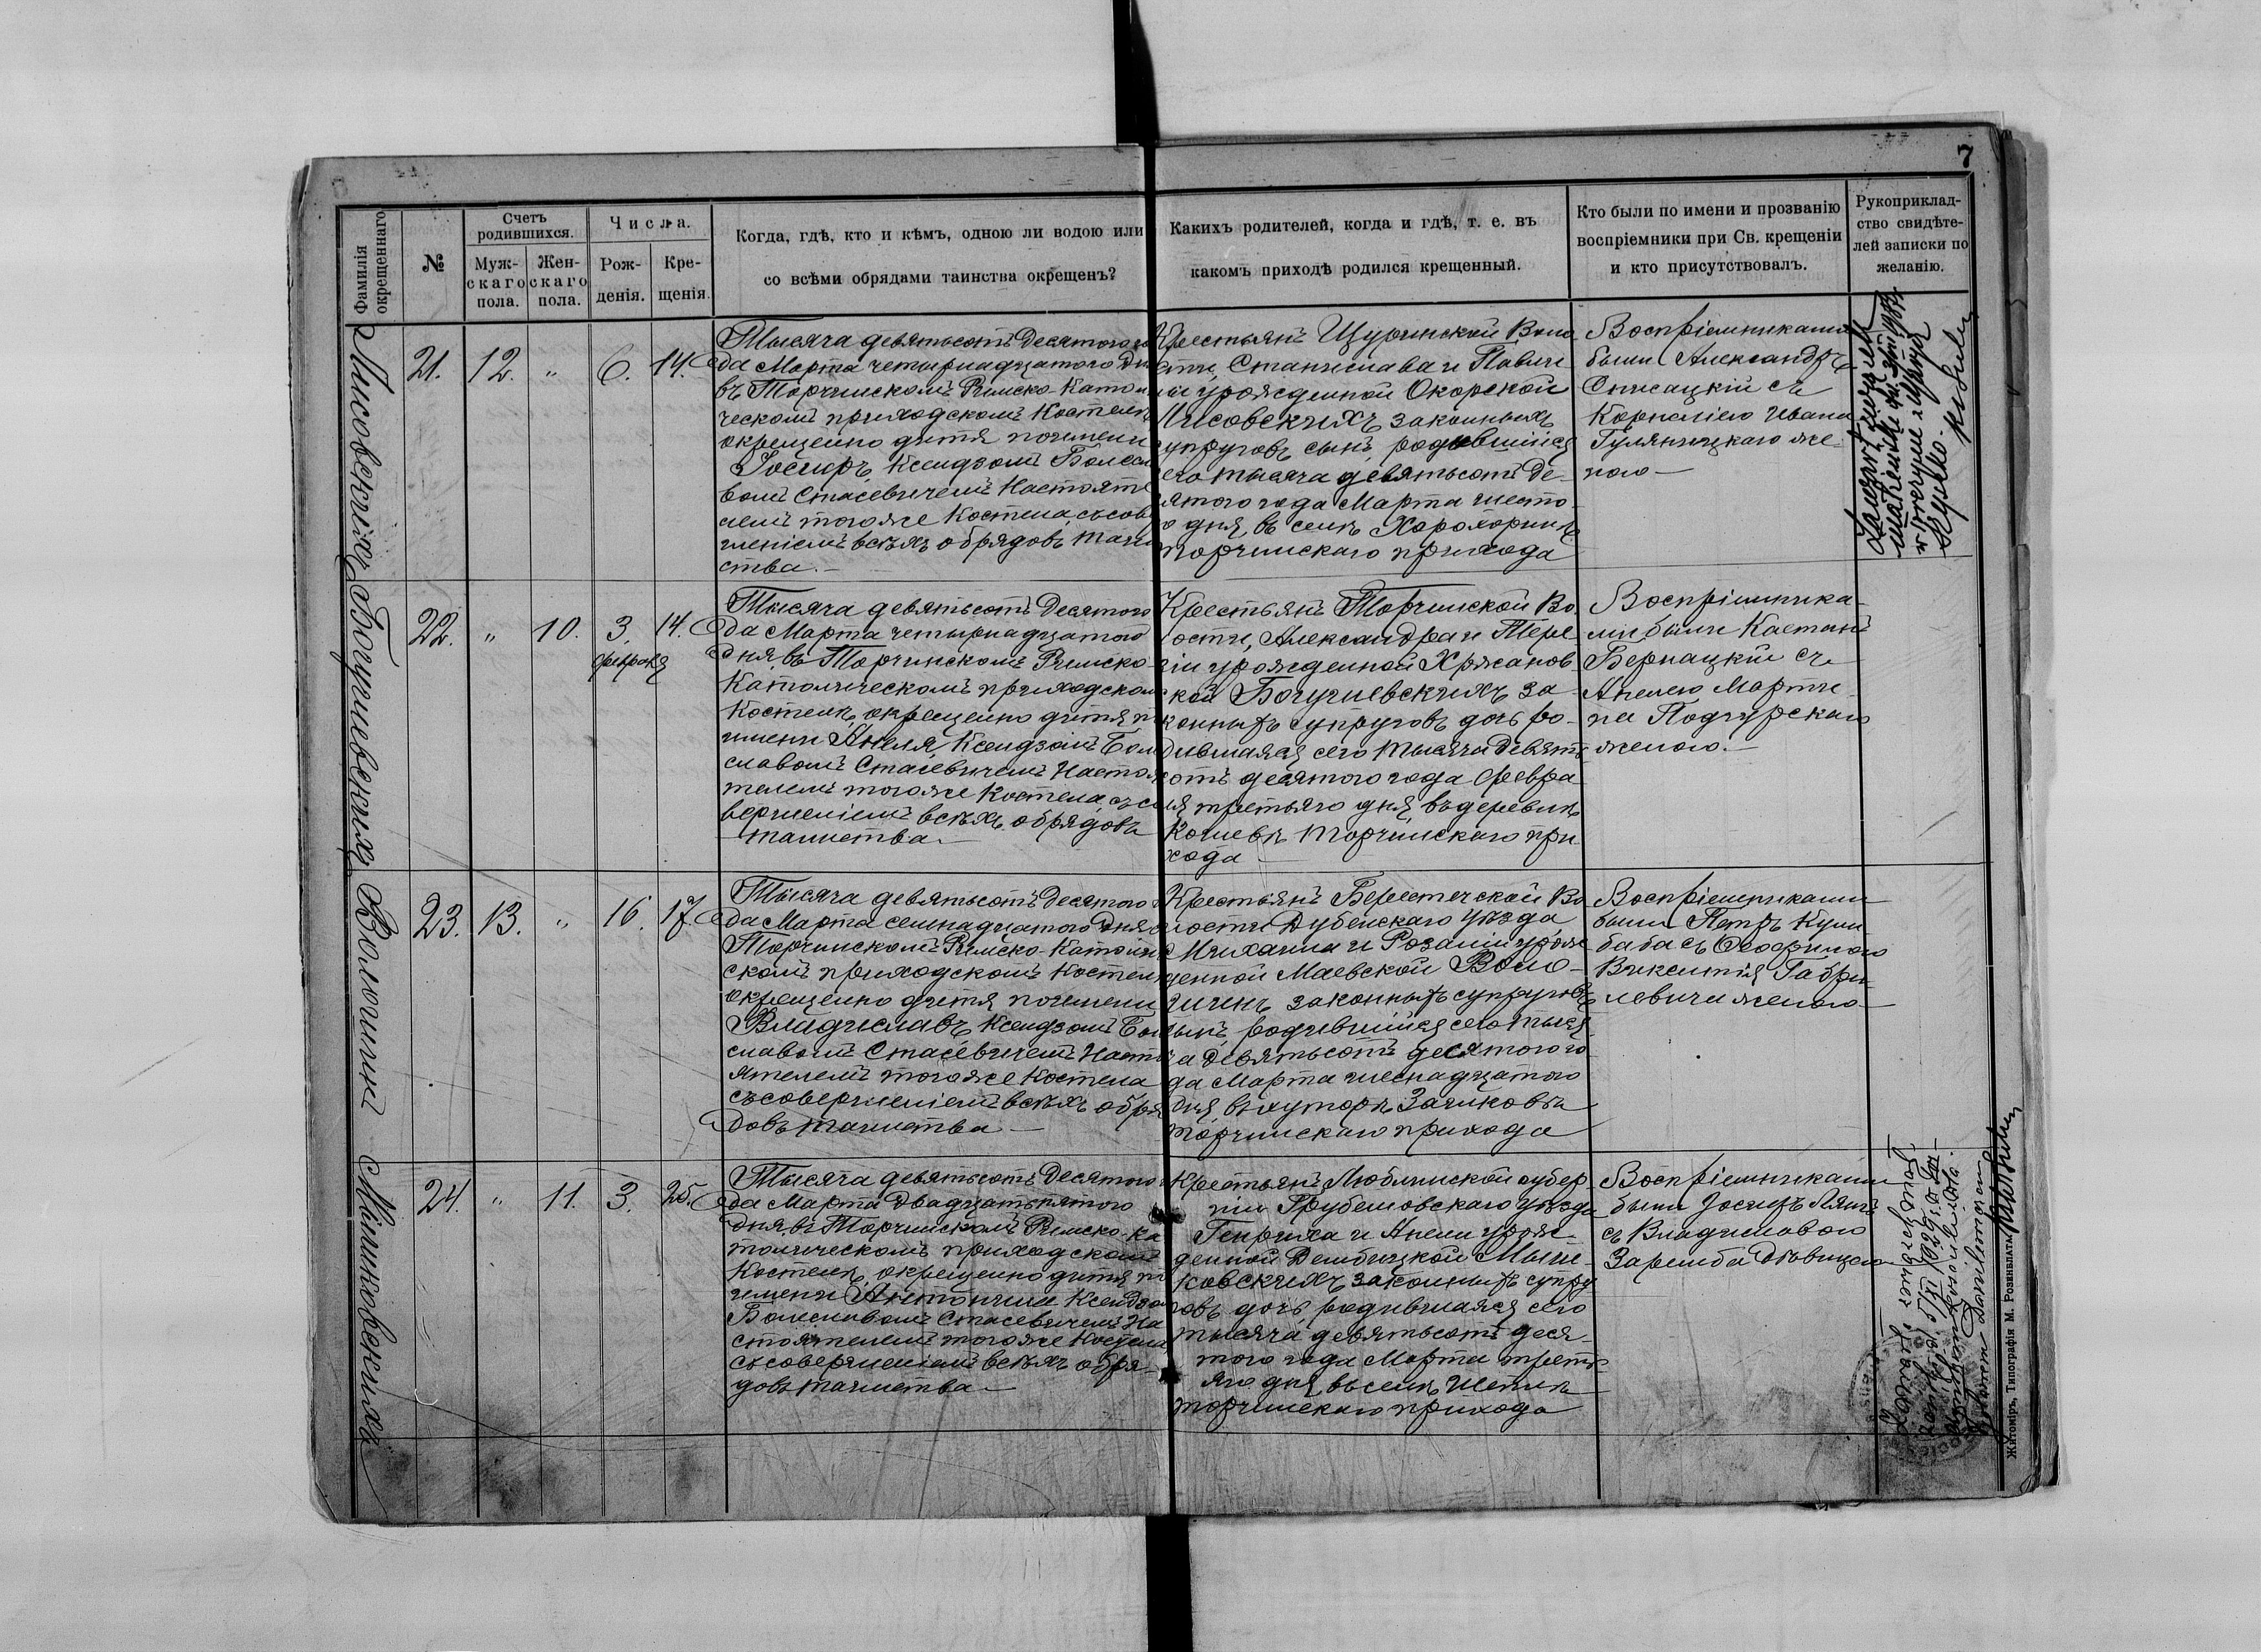 7
Фамилія окрещеннаго
№
Счетъ родившихся.
Мужскаго пола.
Женскаго пола.
Числа.
Рожденія.
Крещенія.
Когда, гдѣ, кто и кѣмъ, одною ли водою или
со всѣми обрядами таинства окрещенъ?
Какихъ родителей, когда и гдѣ, т. е. въ
какомъ приходѣ родился крещенный.
Кто были по имени и прозванію
воспріемники при Св. крещеніи
и кто присутствовалъ.
Рукоприклад-
ство свидѣте-
лей записки по
желанію.
Лисовскихъ
21. 12. „ 6. 14.
Тысяча девятьсотъ десятого го
да Марта четырнадцатого дня
въ Торчинскомъ Римско-Католи
ческомъ приходскомъ Костелѣ
окрещено дитя по имени
Іосифъ, Ксендзомъ Болесла
вомъ Стасевичемъ Настояте
лемъ того же Костела, съ сов
шеніемъ всѣхъ обрядовъ таин
ства.—
Крестьянъ Щуринской Воло
сти, Станислава и
урожденной Окорской
Лисовскихъ законныхъ
супруговъ сынъ, родившійся
сего тысяча девятьсотъ де-
сятого года Марта шесто-
го дня, въ селѣ Хорохоринѣ
Торчинскаго прихода
Воспріемниками
были Александръ
съ
Корнеліею Ивана
Гуляницкаго же-
ною—
Богушевскихъ
22. „ 10. 3. 14.
февраля
Тысяча девятьсотъ десятого
да Марта четырнадцатого
дня, въ Торчинскомъ Римско-
Католическомъ приходском
Костелѣ, окрещено дитя п
имени Анеля, Ксендзомъ Бол
славомъ Стасевичемъ Настоя
телемъ того же Костела, съ со
вершеніемъ всѣхъ обрядовъ
таинства.—
Крестьянъ Торчинской Во
лости, Александра и Тере-
зіи урожденной Хржанов
ской Богушевскихъ за-
конныхъ супруговъ дочь ро-
дившаяся сего тысяча девять
сотъ десятого года февра
ля третьяго дня, въ деревнѣ
Кошевѣ Торчинскаго при
хода
Воспріемника-
ми были Каетанъ
Бернацкій съ
Анелею Марти-
на Подгурскаго
женою.—
Волошинъ
23. 13. „ 16. 17.
Тысяча девятьсотъ десятого
да Марта семнадцатого дня
Торчинскомъ Римско-Католич
скомъ приходскомъ Костел
окрещено дитя по имени
Владиславъ, Ксендзомъ Бол
славомъ Стасевичемъ Насто
ятелемъ того же Костела
съ совершеніемъ всѣхъ обря
довъ таинства—
Крестьянъ Берестечской Во
лости Дубенскаго уѣзда,
Михаила и Розаліи урож
денной Маевской Воло-
шинъ законныхъ супруговъ
сынъ, родившійся сего тыся
ча девятьсотъ десятого го
да Марта шеснадцатого
дня, въ хуторѣ
Торчинскаго прихода
Воспріемниками
были Петръ Кули
баба съ Теофилею
Викентія Габри
левича женою—
24. „ 11. 3. 25.
Тысяча девятьсотъ десятого
да Марта двадцать пятого
дня, въ Торчинскомъ Римско-Ка
толическомъ приходскомъ
Костелѣ, окрещено дитя по
имени Антонина, Ксендзом
Болеславомъ Стасевичемъ На
стоятелемъ того же Костела,
съ совершеніемъ всѣхъ обря-
довъ таинства—
Крестьянъ Люблинской губер
ніи Грубешовскаго уѣзда
Генриха и Анели урож-
денной Дембицкой
законныхъ супру
говъ дочь, родившаяся сего
тысяча девятьсотъ деся-
того года Марта треть
яго дня, въ селѣ
Торчинскаго прихода
Воспріемниками
были Іосифъ
съ Владиславою
Заремба дѣвицею
Житоміръ, Типографія М. Розенблата.